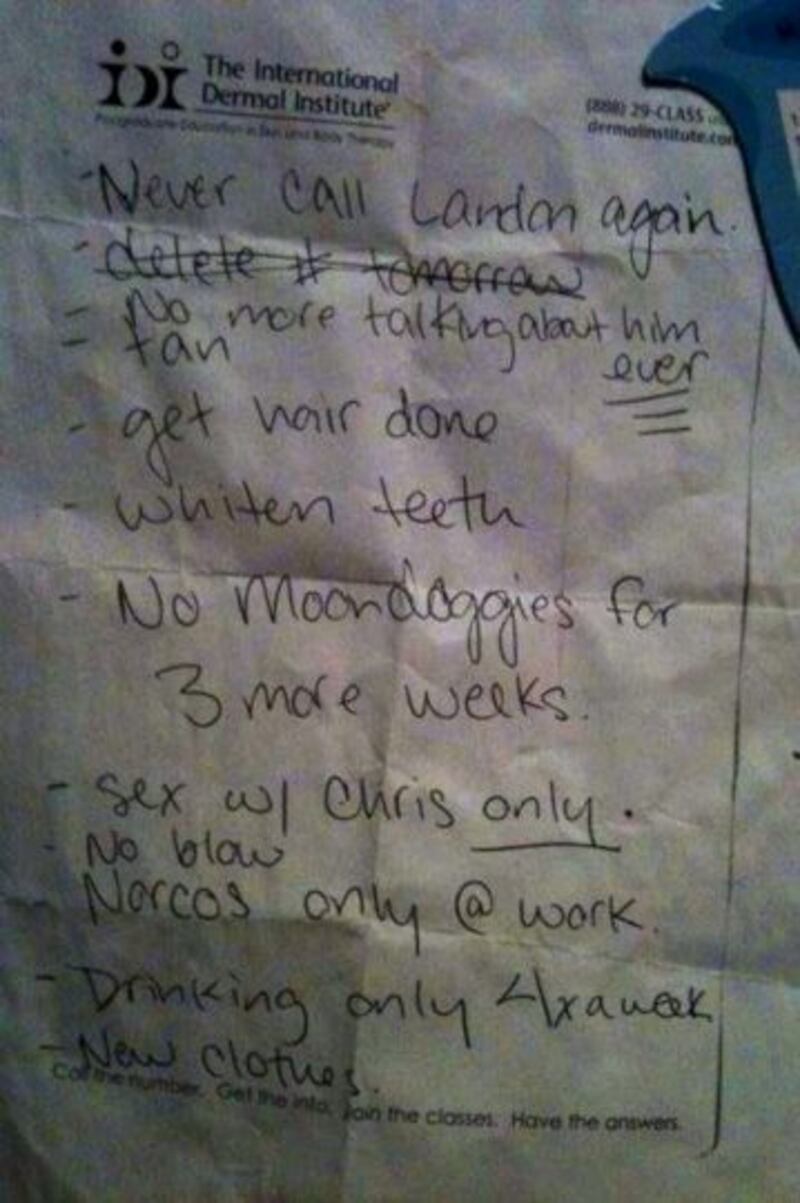 The International
Dermal Institute
(888) 29-CLASS
Postgraduate Education in Skin and Body Therapy
dermalinstitute.com
-Never call Landon again.
- delete # tomorrow
- No more talking about him
ever
- tan
- get hair done
- whiten teeth
- No Moondoggies for
3 more weeks.
- sex w/ Chris only.
- No blow
- Norcos only @ work.
- Drinking only 4x a week
- New clothes.
Call the number. Get the info. Join the classes. Have the answers.